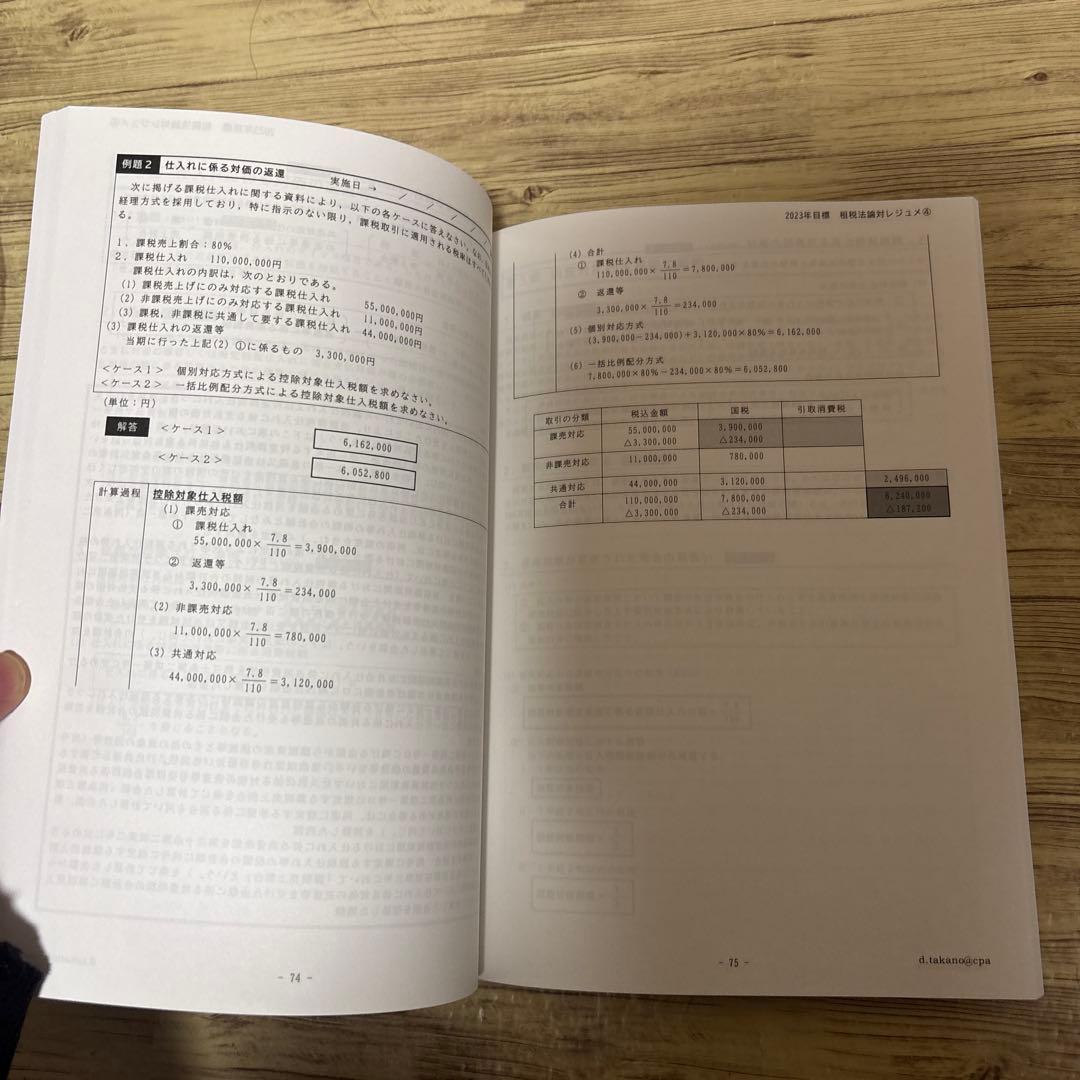 例題2 仕入れに係る対価の返還 実施日 → / / / /
次に掲げる課税仕入れに関する資料により、以下の各ケースに答えなさい。
経理方式を採用しており、特に指示のない限り、課税取引に適用される税率はすべて
る。
1.課税売上割合:80%
2.課税仕入れ 110,000,000円
課税仕入れの内訳は、次のとおりである。
(1) 課税売上げにのみ対応する課税仕入れ 55,000,000円
(2) 非課税売上げにのみ対応する課税仕入れ 11,000,000円
(3) 課税、非課税に共通して要する課税仕入れ 44,000,000円
(3) 課税仕入れの返還等
当期に行った上記(2) ①に係るもの 3,300,000円
<ケース1> 個別対応方式による控除対象仕入税額を求めなさい。
<ケース2> 一括比例配分方式による控除対象仕入税額を求めなさい。
(単位:円)
解答 <ケース1> 6,162,000
<ケース2> 6,052,800
計算過程 控除対象仕入税額
(1) 課売対応
① 課税仕入れ
55,000,000× 7.8/110 =3,900,000
② 返還等
3,300,000× 7.8/110 =234,000
(2) 非課売対応
11,000,000× 7.8/110 =780,000
(3) 共通対応
44,000,000× 7.8/110 =3,120,000
- 74 -
2023年目標 租税法論対レジュメ④
(4) 合計
① 課税仕入れ
110,000,000× 7.8/110 =7,800,000
② 返還等
3,300,000× 7.8/110 =234,000
(5) 個別対応方式
(3,900,000-234,000)+3,120,000×80%=6,162,000
(6) 一括比例配分方式
7,800,000×80%-234,000×80%=6,052,800
取引の分類 税込金額 国税 引取消費税
課売対応 55,000,000 3,900,000
△3,300,000 △234,000
非課売対応 11,000,000 780,000
共通対応 44,000,000 3,120,000 2,496,000
合計 110,000,000 7,800,000 6,240,000
△3,300,000 △234,000 △187,200
- 75 -
d.takano@cpa